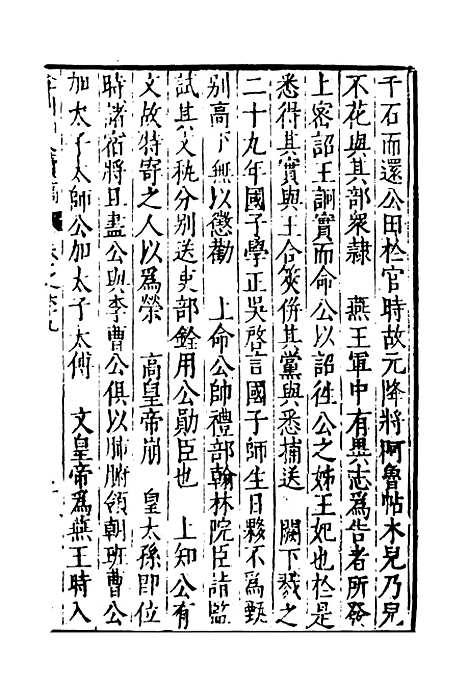 千石而還公田於官時故元降將阿魯帖木兒乃兒
不花與其部衆隷 燕王軍中有異志爲告者所發
上密詔王詗實而命公以詔徃公之姊王妃也於是
悉得其實與王合筴併其黨與悉捕送 闕下戮之
二十九年國子學正吳啓言國子師生日夥不爲甄
别高下無以懲勸 上命公帥禮部翰林院臣請監
試其文秇分别送吏部銓用公勛臣也 上知公有
文故特寄之人以爲榮 高皇帝崩 皇太孫即位
時諸宿將且盡公與李曹公俱以肺腑領朝班曹公
加太子太師公加太子太傅 文皇帝爲燕王時入